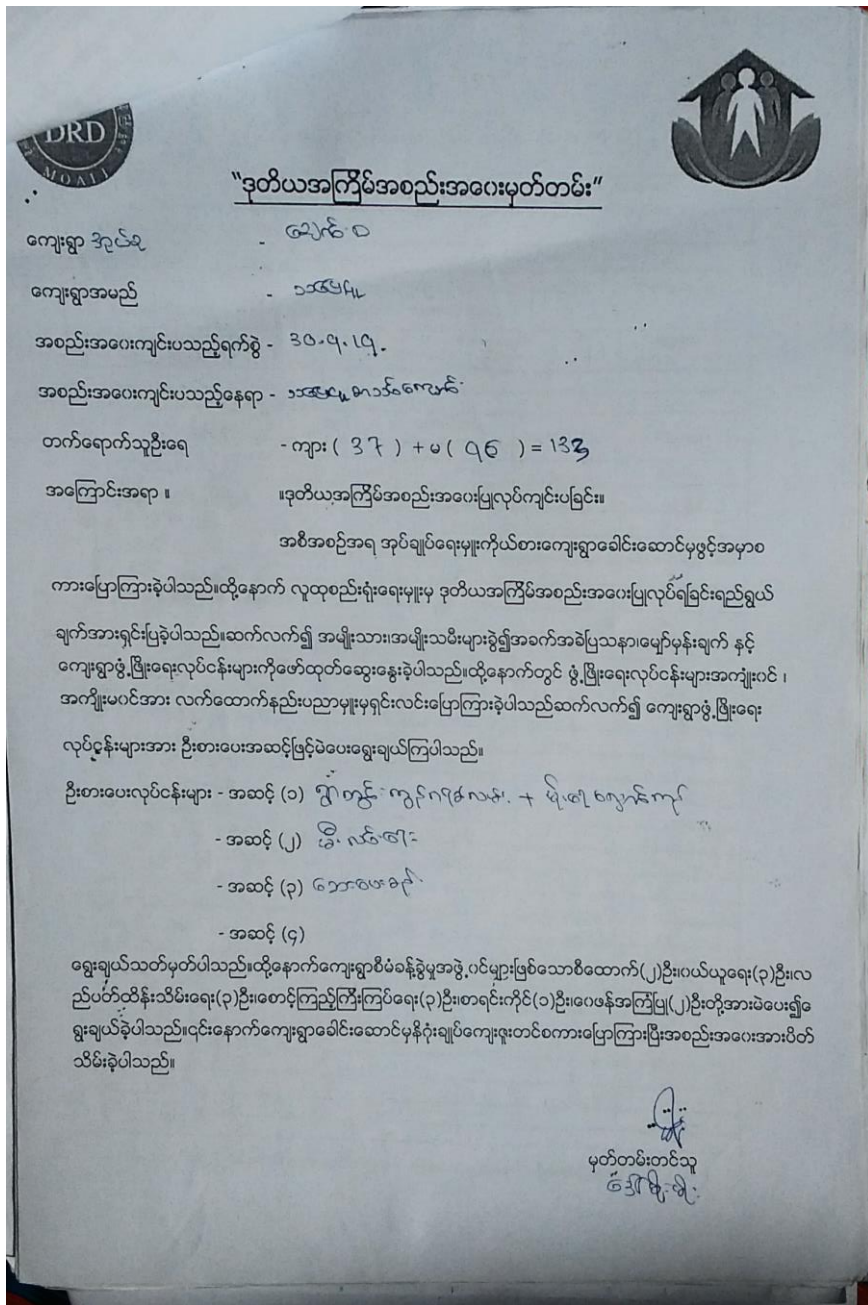 DRD
MOALI
"ဒုတိယအကြိမ်အစည်းအဝေးမှတ်တမ်း"
ကျေးရွာ အုပ်စု -
ကျေးရွာအမည် -
အစည်းအဝေးကျင်းပသည့်ရက်စွဲ - 30.9.19.
အစည်းအဝေးကျင်းပသည့်နေရာ -
တက်ရောက်သူဦးရေ - ကျား ( 37 ) + မ ( 96 ) = 133
အကြောင်းအရာ ။ ။ဒုတိယအကြိမ်အစည်းအဝေးပြုလုပ်ကျင်းပခြင်း။
အစီအစဉ်အရ အုပ်ချုပ်ရေးမှူးကိုယ်စားကျေးရွာခေါင်းဆောင်မှဖွင့်အမှာစ
ကားပြောကြားခဲ့ပါသည်။ထို့နောက် လူထုစည်းရုံးရေးမှူးမှ ဒုတိယအကြိမ်အစည်းအဝေးပြုလုပ်ရခြင်းရည်ရွယ်
ချက်အားရှင်းပြခဲ့ပါသည်။ဆက်လက်၍ အမျိုးသား၊အမျိုးသမီးများခွဲ၍အခက်အခဲပြသနာ၊မျှော်မှန်းချက် နှင့်
ကျေးရွာဖွံ့ဖြိုးရေးလုပ်ငန်းများကိုဖော်ထုတ်ဆွေးနွေးခဲ့ပါသည်။ထို့နောက်တွင် ဖွံ့ဖြိုးရေးလုပ်ငန်းများအကျုံးဝင် ၊
အကျိုးမဝင်အား လက်ထောက်နည်းပညာမှူးမှရှင်းလင်းပြောကြားခဲ့ပါသည်ဆက်လက်၍ ကျေးရွာဖွံ့ဖြိုးရေး
လုပ်ငန်းများအား ဦးစားပေးအဆင့်ဖြင့်မဲပေးရွေးချယ်ကြပါသည်။
ဦးစားပေးလုပ်ငန်းများ - အဆင့် (၁) ရွာတွင်း ကွန်ကရစ်လမ်း +
- အဆင့် (၂) မီးလင်းရေး
- အဆင့် (၃)
- အဆင့် (၄)
ရွေးချယ်သတ်မှတ်ပါသည်။ထို့နောက်ကျေးရွာစီမံခန့်ခွဲမှုအဖွဲ့ဝင်များဖြစ်သောစီထောက်(၂)ဦး၊ဝယ်ယူရေး(၃)ဦး၊လ
ည်ပတ်ထိန်းသိမ်းရေး(၃)ဦး၊စောင့်ကြည့်ကြီးကြပ်ရေး(၃)ဦး၊စာရင်းကိုင်(၁)ဦး၊ဝေဖန်အကြံပြု(၂)ဦးတို့အားမဲပေး၍ရေ
ရွးချယ်ခဲ့ပါသည်။၎င်းနောက်ကျေးရွာခေါင်းဆောင်မှနိဂုံးချုပ်ကျေးဇူးတင်စကားပြောကြားပြီးအစည်းအဝေးအားပိတ်
သိမ်းခဲ့ပါသည်။
မှတ်တမ်းတင်သူ